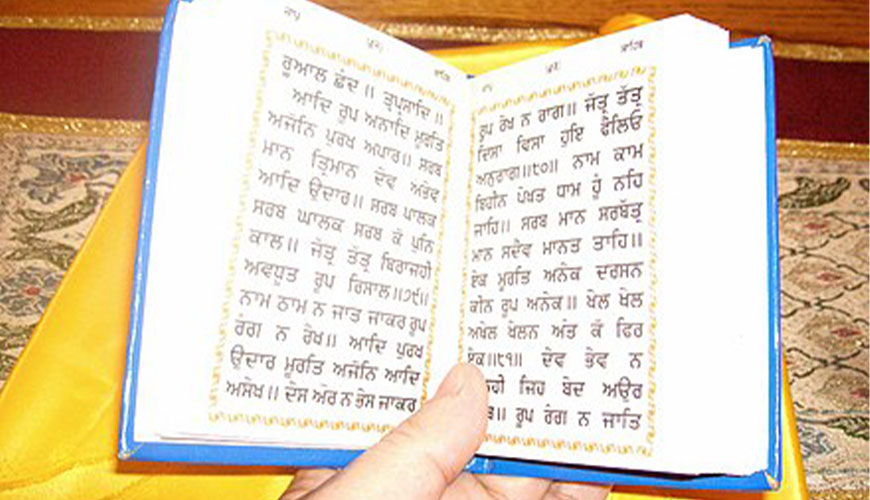 ਜਾਪੁ
ਰੂਆਲ ਛੰਦ ॥ ਤ੍ਵਪ੍ਰਸਾਦਿ ॥
ਆਦਿ ਰੂਪ ਅਨਾਦਿ ਮੂਰਤਿ
ਅਜੋਨਿ ਪੁਰਖ ਅਪਾਰ॥ ਸਰਬ
ਮਾਨ ਤ੍ਰਿਮਾਨ ਦੇਵ ਅਭੇਵ
ਆਦਿ ਉਦਾਰ॥ ਸਰਬ ਪਾਲਕ
ਸਰਬ ਘਾਲਕ ਸਰਬ ਕੋ ਪੁਨਿ
ਕਾਲ॥ ਜੱਤ੍ਰ ਤੱਤ੍ਰ ਬਿਰਾਜਹੀ
ਅਵਧੂਤ ਰੂਪ ਰਿਸਾਲ॥੭੯॥
ਨਾਮ ਠਾਮ ਨ ਜਾਤ ਜਾਕਰ ਰੂਪ
ਰੰਗ ਨ ਰੇਖ॥ ਆਦਿ ਪੁਰਖ
ਉਦਾਰ ਮੂਰਤਿ ਅਜੋਨਿ ਆਦਿ
ਅਸੇਖ॥ ਦੇਸ ਔਰ ਨ ਭੇਸ ਜਾਕਰ
ਰੂਪ ਰੇਖ ਨ ਰਾਗ॥ ਜੱਤ੍ਰ ਤੱਤ੍ਰ
ਦਿਸਾ ਵਿਸਾ ਹੁਇ ਫੈਲਿਓ
ਅਨੁਰਾਗ॥੮੦॥ ਨਾਮ ਕਾਮ
ਬਿਹੀਨ ਪੇਖਤ ਧਾਮ ਹੂੰ ਨਹਿ
ਜਾਹਿ॥ ਸਰਬ ਮਾਨ ਸਰਬੱਤ੍ਰ
ਮਾਨ ਸਦੈਵ ਮਾਨਤ ਤਾਹਿ॥
ਏਕ ਮੂਰਤਿ ਅਨੇਕ ਦਰਸਨ
ਕੀਨ ਰੂਪ ਅਨੇਕ॥ ਖੇਲ ਖੇਲ
ਅਖੇਲ ਖੇਲਨ ਅੰਤ ਕੋ ਫਿਰ
ਏਕ॥੮੧॥ ਦੇਵ ਭੇਵ ਨ
ਜਿਹ ਬੇਦ ਅਉਰ
ਰੂਪ ਰੰਗ ਨ ਜਾਤਿ